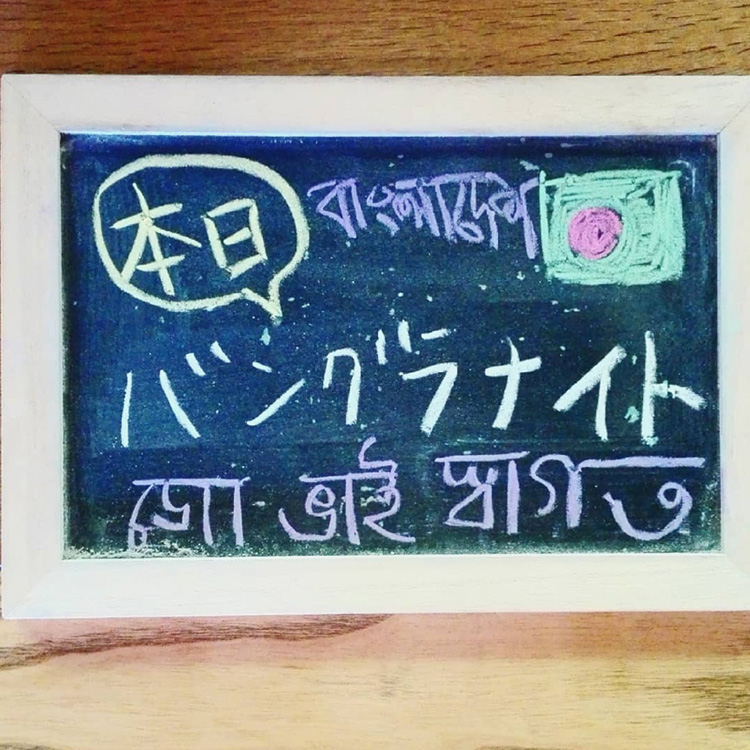 本日
বাংলাদেশ
バングラナイト
ভাই স্বাগত